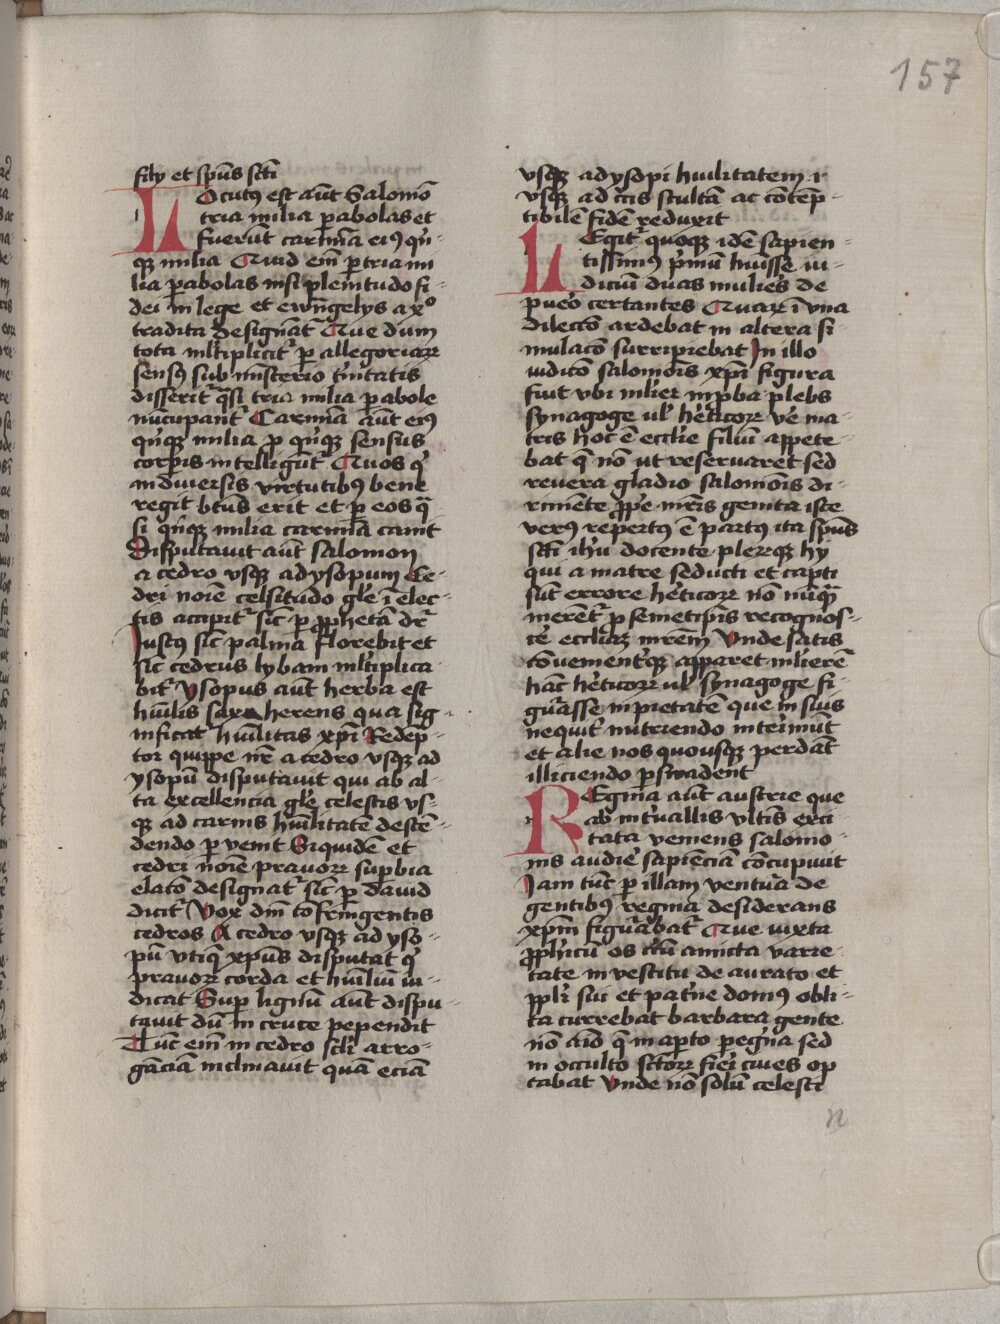 157
filii et spūs scti
Locutꝯ est aūt Salomō
tria milia ꝑabolas et
fuerūt carmīa eiꝯ qͥn-
qꝫ milia Quid eīm ꝑ tria mi
lia ꝑabolas nisi plenitudo fi-
dei in lege et ewāngelijs a xᵒ
tradita designat᷑ Que dum
tota mĺtiplicit᷑ ꝑ allegoriaꝝ
sensꝰ sub misterio tͥnitatis
disserit᷑ qͣsi tria milia ꝑabole
nūcupant᷑ Carmīa aūt eiꝯ
qͥnqꝫ milia ꝑ qͥnqꝫ sensus
corꝑis intelligūt᷑ Quos qͥ
in diuersis virtutibꝯ bene
regit btūs erit et ꝑ eos qͣ
si qͥnqꝫ milia carmīa canit
Disputauit aūt salomon
a cedro vsqꝫ ad ysopum Ce-
dri noīe celsitudo gl̄e ī elec-
tis accipit᷑ sic̄ ꝑ ꝓphetā dr̄
Justꝯ sic̄ palma florebit et
sic̄ cedrus lybani mĺtiplica
bit᷑ ysopus aūt herba est
hūilis saxo herens qua sig-
nificat᷑ hūilitas xp̄i Redēp-
tor quippe nr̄e a cedro vsqꝫ ad
ysopū disputauit qui ab al-
ta excellencia gl̄e celestis vs-
qꝫ ad carnis hūilitatē descē-
dendo ꝑuenit Siquidē et
cedri noīe prauoꝝ suꝑbia
elatō designat᷑ sic̄ ꝑ dauid
dicit᷑ Vox dn̄i cōfringentis
cedros A cedro vsqꝫ ad yso-
pū vtiqꝫ xp̄us disputat qͥ
prauoꝝ corda et hūiliū iu-
dicat Suꝑ lignū aūt dispu-
tauit dū in cruce pependit
Tūc eīm in cedro scl̄i arro-
gāciā inclinauit quā eciā
vsqꝫ ad ysopi hūilitatem ⁊
vsqꝫ ad cͥcis stultā ac cōtēp-
tibilē fidē reduxit
Legit᷑ quoqꝫ idē sapien-
tissimꝯ pͥmū hūisse iu-
diciū duas muliēs de
puēo certantes Quaꝝ ī vna
dileccō ardebat in altera si-
mulacō surripiebat In illo
iudicō salomōis xp̄i figura
fuit vbi mĺier inꝓba plebs
synagoge ul̓ hēticoꝝ ve ma-
tris hoc ē eccl̄ie filiū appete-
bat qͤ nō ut reseruaret sed
reuera gladio salomōis di-
rimēte ꝓpe mr̄is genita iste
verꝯ repertꝯ ē partꝯ ita spūs
scti ihū docente pleriqꝫ hij
qui a matre seducti et capti
sūt errore hēticoꝝ nō nūqͣ
merēt᷑ ꝑ semetipīs recognos-
cē eccliāꝫ mr̄em Vnde satis
cōuenientˢqꝫ apparet mĺierē
hāc hēticoꝝ ul̓ synagoge fi-
gūrasse inpietatē que in suis
nequit᷑ nutriendo int᷑imūt
et alienos quousqꝫ perdāt
illiciendo ꝑswadent
Regina aūt austrie que
ab int᷑uallis vltīs exci-
tata veniens salomo-
nis audiē sapiēciā cōcupiuit
Jam tūc ꝑ illam ventūa de
gentibꝯ regina desiderans
xp̄m figūabat᷑ Que iuxta
ꝓphicū os ctū amicta varie-
tate in vestitu de aurato et
ppl̄i sui et patͥne domꝯ obli-
ta currebat barbara gente
nō aīo qͤ in apto peḡna sed
in occulto sctoꝝ fieī ciues op-
tabat Vnde nō solū celesti
n